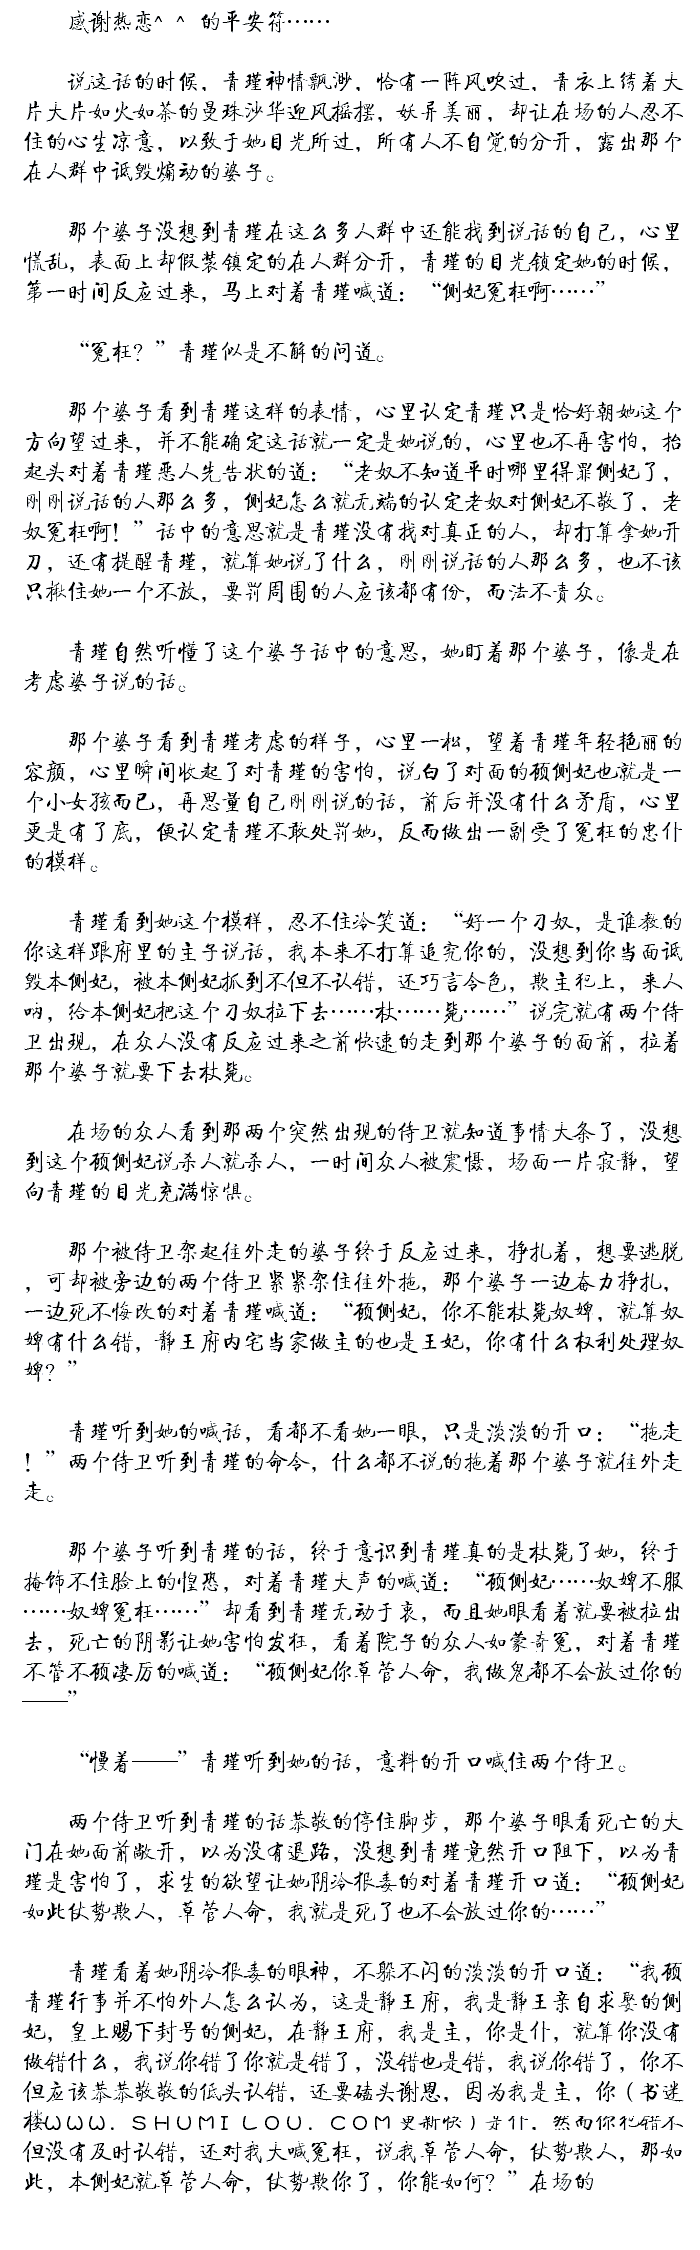 感谢热恋^ ^ 的平安符……
说这话的时候，青瑾神情飘渺，恰有一阵风吹过，青衣上绣着大
片大片如火如荼的曼珠沙华迎风摇摆，妖异美丽，却让在场的人忍不
住的心生凉意，以致于她目光所过，所有人不自觉的分开，露出那个
在人群中诋毁煽动的婆子。
那个婆子没想到青瑾在这么多人群中还能找到说话的自己，心里
慌乱，表面上却假装镇定的在人群分开，青瑾的目光锁定她的时候，
第一时间反应过来，马上对着青瑾喊道：“侧妃冤枉啊……”
“冤枉？”青瑾似是不解的问道。
那个婆子看到青瑾这样的表情，心里认定青瑾只是恰好朝她这个
方向望过来，并不能确定这话就一定是她说的，心里也不再害怕，抬
起头对着青瑾恶人先告状的道：“老奴不知道平时哪里得罪侧妃了，
刚刚说话的人那么多，侧妃怎么就无端的认定老奴对侧妃不敬了，老
奴冤枉啊！”话中的意思就是青瑾没有找对真正的人，却打算拿她开
刀，还有提醒青瑾，就算她说了什么，刚刚说话的人那么多，也不该
只揪住她一个不放，要罚周围的人应该都有份，而法不责众。
青瑾自然听懂了这个婆子话中的意思，她盯着那个婆子，像是在
考虑婆子说的话。
那个婆子看到青瑾考虑的样子，心里一松，望着青瑾年轻艳丽的
容颜，心里瞬间收起了对青瑾的害怕，说白了对面的顾侧妃也就是一
个小女孩而已，再思量自己刚刚说的话，前后并没有什么矛盾，心里
更是有了底，便认定青瑾不敢处罚她，反而做出一副受了冤枉的忠仆
的模样。
青瑾看到她这个模样，忍不住冷笑道：“好一个刁奴，是谁教的
你这样跟府里的主子说话，我本来不打算追究你的，没想到你当面诋
毁本侧妃，被本侧妃抓到不但不认错，还巧言令色，欺主犯上，来人
呐，给本侧妃把这个刁奴拉下去……杖……毙……”说完就有两个侍
卫出现，在众人没有反应过来之前快速的走到那个婆子的面前，拉着
那个婆子就要下去杖毙。
在场的众人看到那两个突然出现的侍卫就知道事情大条了，没想
到这个顾侧妃说杀人就杀人，一时间众人被震慑，场面一片寂静，望
向青瑾的目光充满惊惧。
那个被侍卫架起往外走的婆子终于反应过来，挣扎着，想要逃脱
，可却被旁边的两个侍卫紧紧架住往外拖，那个婆子一边奋力挣扎，
一边死不悔改的对着青瑾喊道：“顾侧妃，你不能杖毙奴婢，就算奴
婢有什么错，静王府内宅当家做主的也是王妃，你有什么权利处理奴
婢？”
青瑾听到她的喊话，看都不看她一眼，只是淡淡的开口：“拖走
！”两个侍卫听到青瑾的命令，什么都不说的拖着那个婆子就往外走
走。
那个婆子听到青瑾的话，终于意识到青瑾真的是杖毙了她，终于
掩饰不住脸上的惶恐，对着青瑾大声的喊道：“顾侧妃……奴婢不服
……奴婢冤枉……”却看到青瑾无动于衷，而且她眼看着就要被拉出
去，死亡的阴影让她害怕发狂，看着院子的众人如蒙奇冤，对着青瑾
不管不顾凄厉的喊道：“顾侧妃你草菅人命，我做鬼都不会放过你的
——”
“慢着——”青瑾听到她的话，意料的开口喊住两个侍卫。
两个侍卫听到青瑾的话恭敬的停住脚步，那个婆子眼看死亡的大
门在她面前敞开，以为没有退路，没想到青瑾竟然开口阻下，以为青
瑾是害怕了，求生的欲望让她阴冷狠毒的对着青瑾开口道：“顾侧妃
如此仗势欺人，草菅人命，我就是死了也不会放过你的……”
青瑾看着她阴冷狠毒的眼神，不躲不闪的淡淡的开口道：“我顾
青瑾行事并不怕外人怎么认为，这是静王府，我是静王亲自求娶的侧
妃，皇上赐下封号的侧妃，在静王府，我是主，你是仆，就算你没有
做错什么，我说你错了你就是错了，没错也是错，我说你错了，你不
但应该恭恭敬敬的低头认错，还要磕头谢恩，因为我是主，你（书迷
楼ωωω．ＳＨＵＭＩＬＯＵ．ＣＯＭ更新快）是仆，然而你犯错不
但没有及时认错，还对我大喊冤枉，说我草菅人命，仗势欺人，那如
此，本侧妃就草菅人命，仗势欺你了，你能如何？”在场的